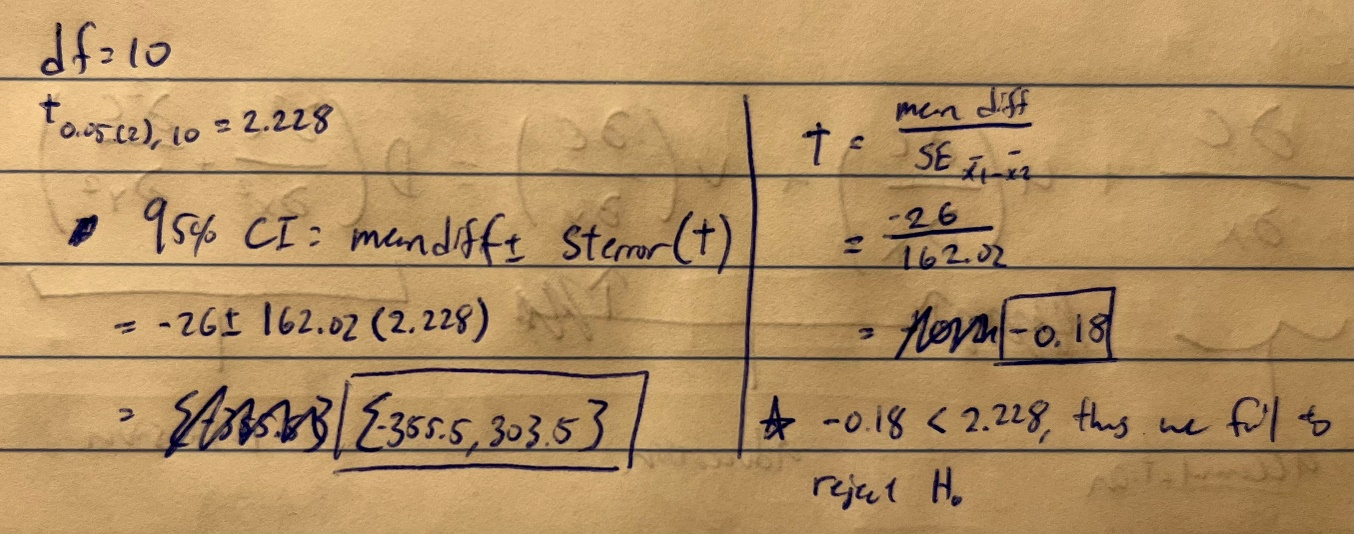 df = 10
t 0.05(2), 10 = 2.228
95% CI = mean diff ± St error (t)
= -26 ± 162.02 (2.228)
= {-355.5, 303.5}
t = mean diff
SE x̄1-x̄2
= -26
162.02
= -0.18
☆ -0.18 < 2.228, thus we fail to
reject H₀